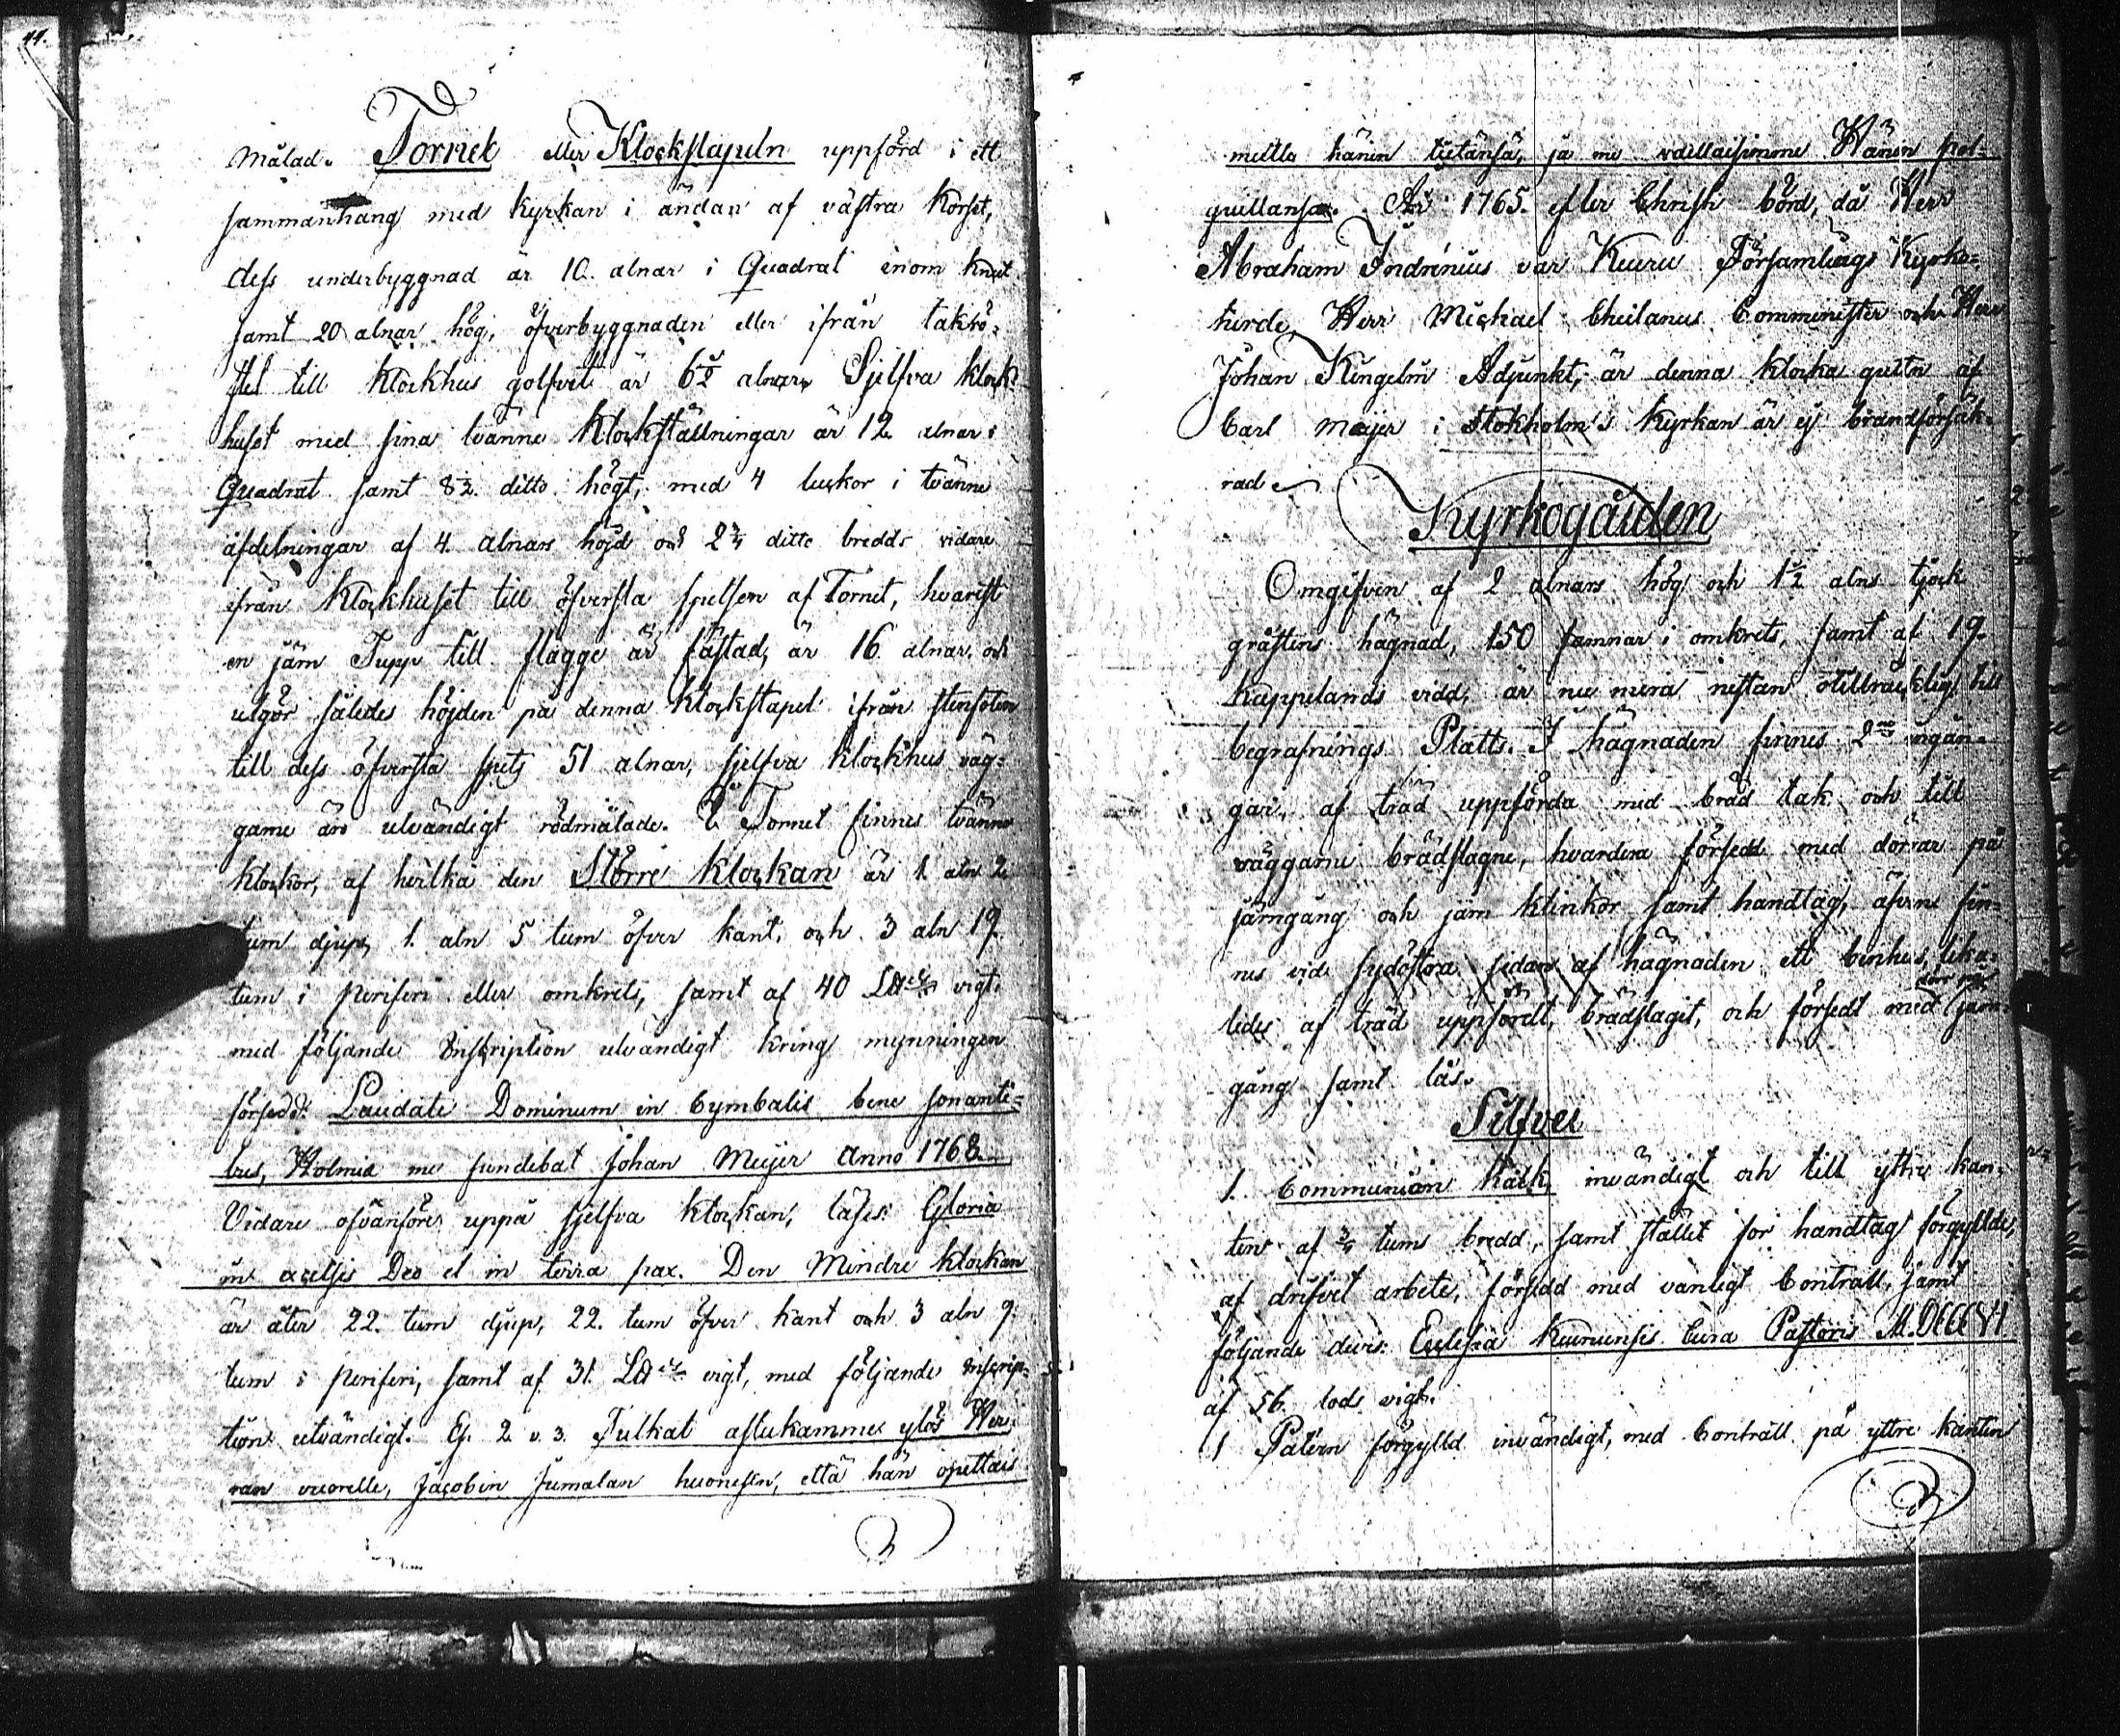 44.
målad. Tornet eller Klockstapeln uppförd i ett
sammanhang med kyrkan i ändan af västra Korset,
dess underbyggnad är 10. alnar i Quadrat inom knut
samt 20 alnar hög, öfverbyggnaden eller ifrån takrö-
stet till klockhus golfvet är 6½ alnar. Sjelfva klock
huset med sina tvänne klockställningar är 12 alnar i
Quadrat samt 8½ ditto högt, med 4 luckor i tvänne
afdelningar af 4. alnars höjd och 2¾ ditto bredd. vidare
ifrån Klockhuset till öfversta spetsen af Tornet, hvarest
en järn Tupp till flagge är fästad, är 16 alnar. och
utgör således höjden på denna klockstapel ifrån stenfoten
till dess öfversta spets 51 alnar, sjelfva klockhus väg-
garne äro utvändigt rödmålade. I Tornet finnes tvänne
klockor, af hvilka den Större klockan är 1. aln 2
tum djup, 1. aln 5 tum öfver kant, och 3 aln 19.
tum i periferi eller omkrets, samt af 40 vigt.
med följande Inscription utvändigt kring mynningen
försedd: Laudate Dominum in Cymbalis bene sonanti-
bus, Holmia me fundebat Johan Meijer Anno 1768.
Vidare ofvanföre uppå sjelfva klockan, läses: Gloria
in excelsis Deo et in terra pax. Den Mindre klockan
är åter 22. tum djup, 22. tum öfver kant och 3 aln 9.
tum i periferi, samt af 31. vigt, med följande Inscrip-
tion utvändigt. Es. 2 v. 3. Tulkat astukamme ylös Her-
ran vuorelle, Jacobin Jumalan huonesen, että hän opettais
meille hänen tietänsä, ja me vaellaisimme Hänen pol-
guillansa. År 1765. efter Christi börd, då Herr
Abraham Indrenius var Kuru Församlings Kyrko-
herde, Herr Michael Cheilanus Comminister och Herr
Johan Kingelin Adjunkt, är denna klocka guten af
Carl Meijer i Stokholm. Kyrkan är ej brandförsäk-
rad.
Kyrkogården
Omgifven af 2 alnars hög och 1½ alns tjock
gråstens hägnad, 150 famnar i omkrets, samt af 19.
kappelands vidd, är nu mera nästan otillräcklig till
begrafnings Platts. I hägnaden finnes 2ne ingån-
gar, af träd uppförda med bräd tak och till
väggarne brädslagne, hvardera försedd med dörrar på
järngång och järn klinkor samt handtag, äfven fin-
nes vid sydöstra sidan af hägnaden ett benhus lika-
ledes af träd uppfördt, brädslaget, och försedt med järn-
gång samt lås.
Silfver
1. Communion Kalk, invändigt och till yttre kan-
ten af ¾ tums bredd, samt stället för handtag förgylld,
af drifvet arbete, försedd med vanligt Contrall, samt
följande devis: Ecclesia Kuruensis Cura Pastoris
af 56. lods vigt.
1 Patén förgylld invändigt, med Contrall på yttre kanten